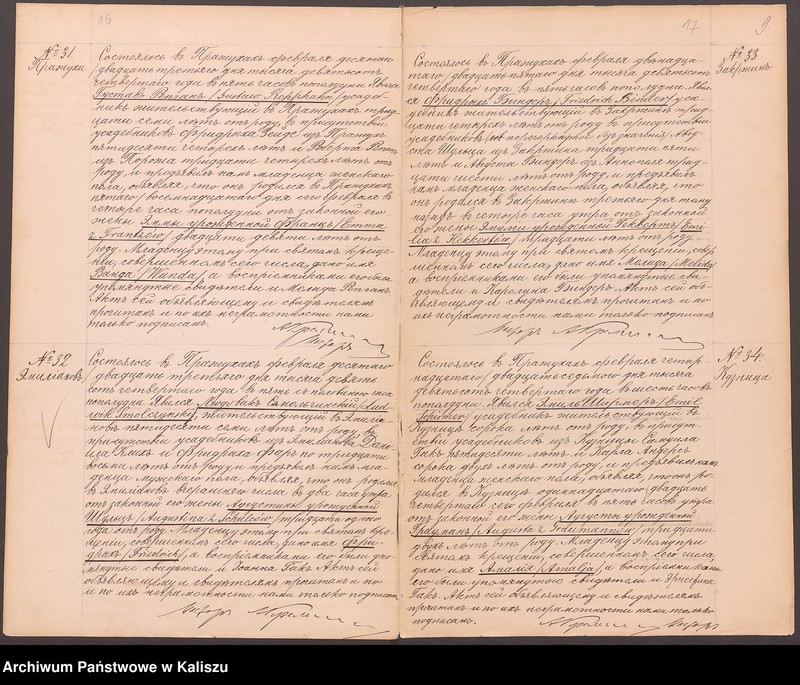 16
№ 31
Пратухи
Состоялось въ Пратухахъ февраля десятаго
/двадцать третьяго дня тысяча девятьсотъ
четвертаго года въ пять часовъ пополудни. Явился
Густавъ
садникъ жительствующій въ Пратухахъ трид-
цати семи лѣтъ отъ роду, въ присутствіи
усадебниковъ Фридриха Зейдѣ изъ Пратухъ
пятидесяти четырехъ лѣтъ и
изъ тридцати четырехъ лѣтъ отъ
роду, и предъявилъ намъ младенца женскаго
пола, объявляя, что онъ родился въ Пратухахъ
пятаго /восемнадцатаго дня сего февраля въ
четыре часа пополудни отъ законной его
жены Эммы урожденной Францъ /Emma
z Frantzów/ двадцати девяти лѣтъ отъ
роду. Младенцу этому при святомъ креще-
ніи, совершенномъ сего числа, дано имя
Ванда /Wanda/, а воспріемниками его были
упомянутые свидѣтели и Мелида
Актъ сей объявляющему и свидѣтелямъ
прочитанъ и по ихъ неграмотности нами
только подписанъ.
№ 32
Эмиліановъ
Состоялось въ Пратухахъ февраля десятаго
/двадцать третьяго дня тысяча девять
сотъ четвертаго года въ пять съ половиною часовъ
пополудни. Явился Людвикъ /Lud-
wik Smolczynski/, жительствующій въ Эмилія-
новѣ пятидесяти семи лѣтъ отъ роду, въ
присутствіи усадебниковъ изъ Эмиліанова Дані-
ила и Фридриха по тридцати
восьми лѣтъ отъ роду, и предъявилъ намъ мла-
денца мужскаго пола, объявляя, что онъ родился
въ Эмиліановѣ вчерашняго числа въ два часа утра
отъ законной его жены Августины урожденной
Шульцъ /Augustina z Schulców/ тридцати одного
года отъ роду. Младенцу этому при святомъ кре-
щеніи, совершенномъ сего числа, дано имя Фри-
дрихъ /Fridrich/, а воспріемниками его были упо-
мянутые свидѣтели и Іоанна Гакъ. Актъ сей
объявляющему и свидѣтелямъ прочитанъ и по
и по ихъ неграмотности нами только подписанъ.
17
9
№ 33
Закржинъ
Состоялось въ Пратухахъ февраля двѣнадца-
таго /двадцать пятаго дня тысяча девятьсотъ
четвертаго года въ пять часовъ пополудни. Явил-
ся Фридрихъ Биндеръ /Friedrich Binder/ уса-
дебникъ жительствующій въ Закржинѣ трид-
цати четырехъ лѣтъ отъ роду, въ присутствіи
усадебниковъ Авгу-
ста Шульца изъ Закржина тридцати пяти
лѣтъ и Августа Биндеръ изъ Аннополя трид-
цати шести лѣтъ отъ роду, и предъявилъ
намъ младенца женскаго пола, объявляя, что
онъ родился въ Закржинѣ третьяго дня тому
назадъ въ четыре часа утра отъ законной
его жены Эмиліи урожденной Геккертъ /Emi-
lia z / тридцати лѣтъ отъ роду.
Младенцу этому при святомъ крещеніи, совер-
шенномъ сего числа, дано имя Мелида /Melida/
а воспріемниками его были упомянутые сви-
дѣтели и Каролина Биндеръ. Актъ сей объ-
являющему и свидѣтелямъ прочитанъ и по
ихъ неграмотности нами только подписанъ
№ 34
Кузница
Состоялось въ Пратухахъ февраля четыр-
надцатаго /двадцать седьмого дня тысяча
девятьсотъ четвертаго года въ шесть часовъ
пополудни. Явился Эмиль /Emil
/ усадебникъ жительствующій въ
Кузницѣ сорока лѣтъ отъ роду, въ присут-
ствіи усадебниковъ изъ Кузницы Самуила
Гакъ пятидесяти лѣтъ и Карла Андерсъ
сорока двухъ лѣтъ отъ роду, и предъявилъ намъ
младенца женскаго пола, объявляя, что онъ ро-
дился въ Кузницѣ одиннадцатаго /двадцать
четвертаго сего февраля въ пять часовъ утра
отъ законной его жены Августы урожденной
/Augusta z / тридцати
двухъ лѣтъ отъ роду. Младенцу этому при
святомъ крещеніи, совершенномъ сего числа,
дано имя Амалія /Amalja/, а воспріемниками
его были упомянутые свидѣтели и Эрнестина
Гакъ. Актъ сей объявляющему и свидѣтелямъ
прочитанъ и по ихъ неграмотности нами только
подписанъ.
Archiwum Państwowe w Kaliszu